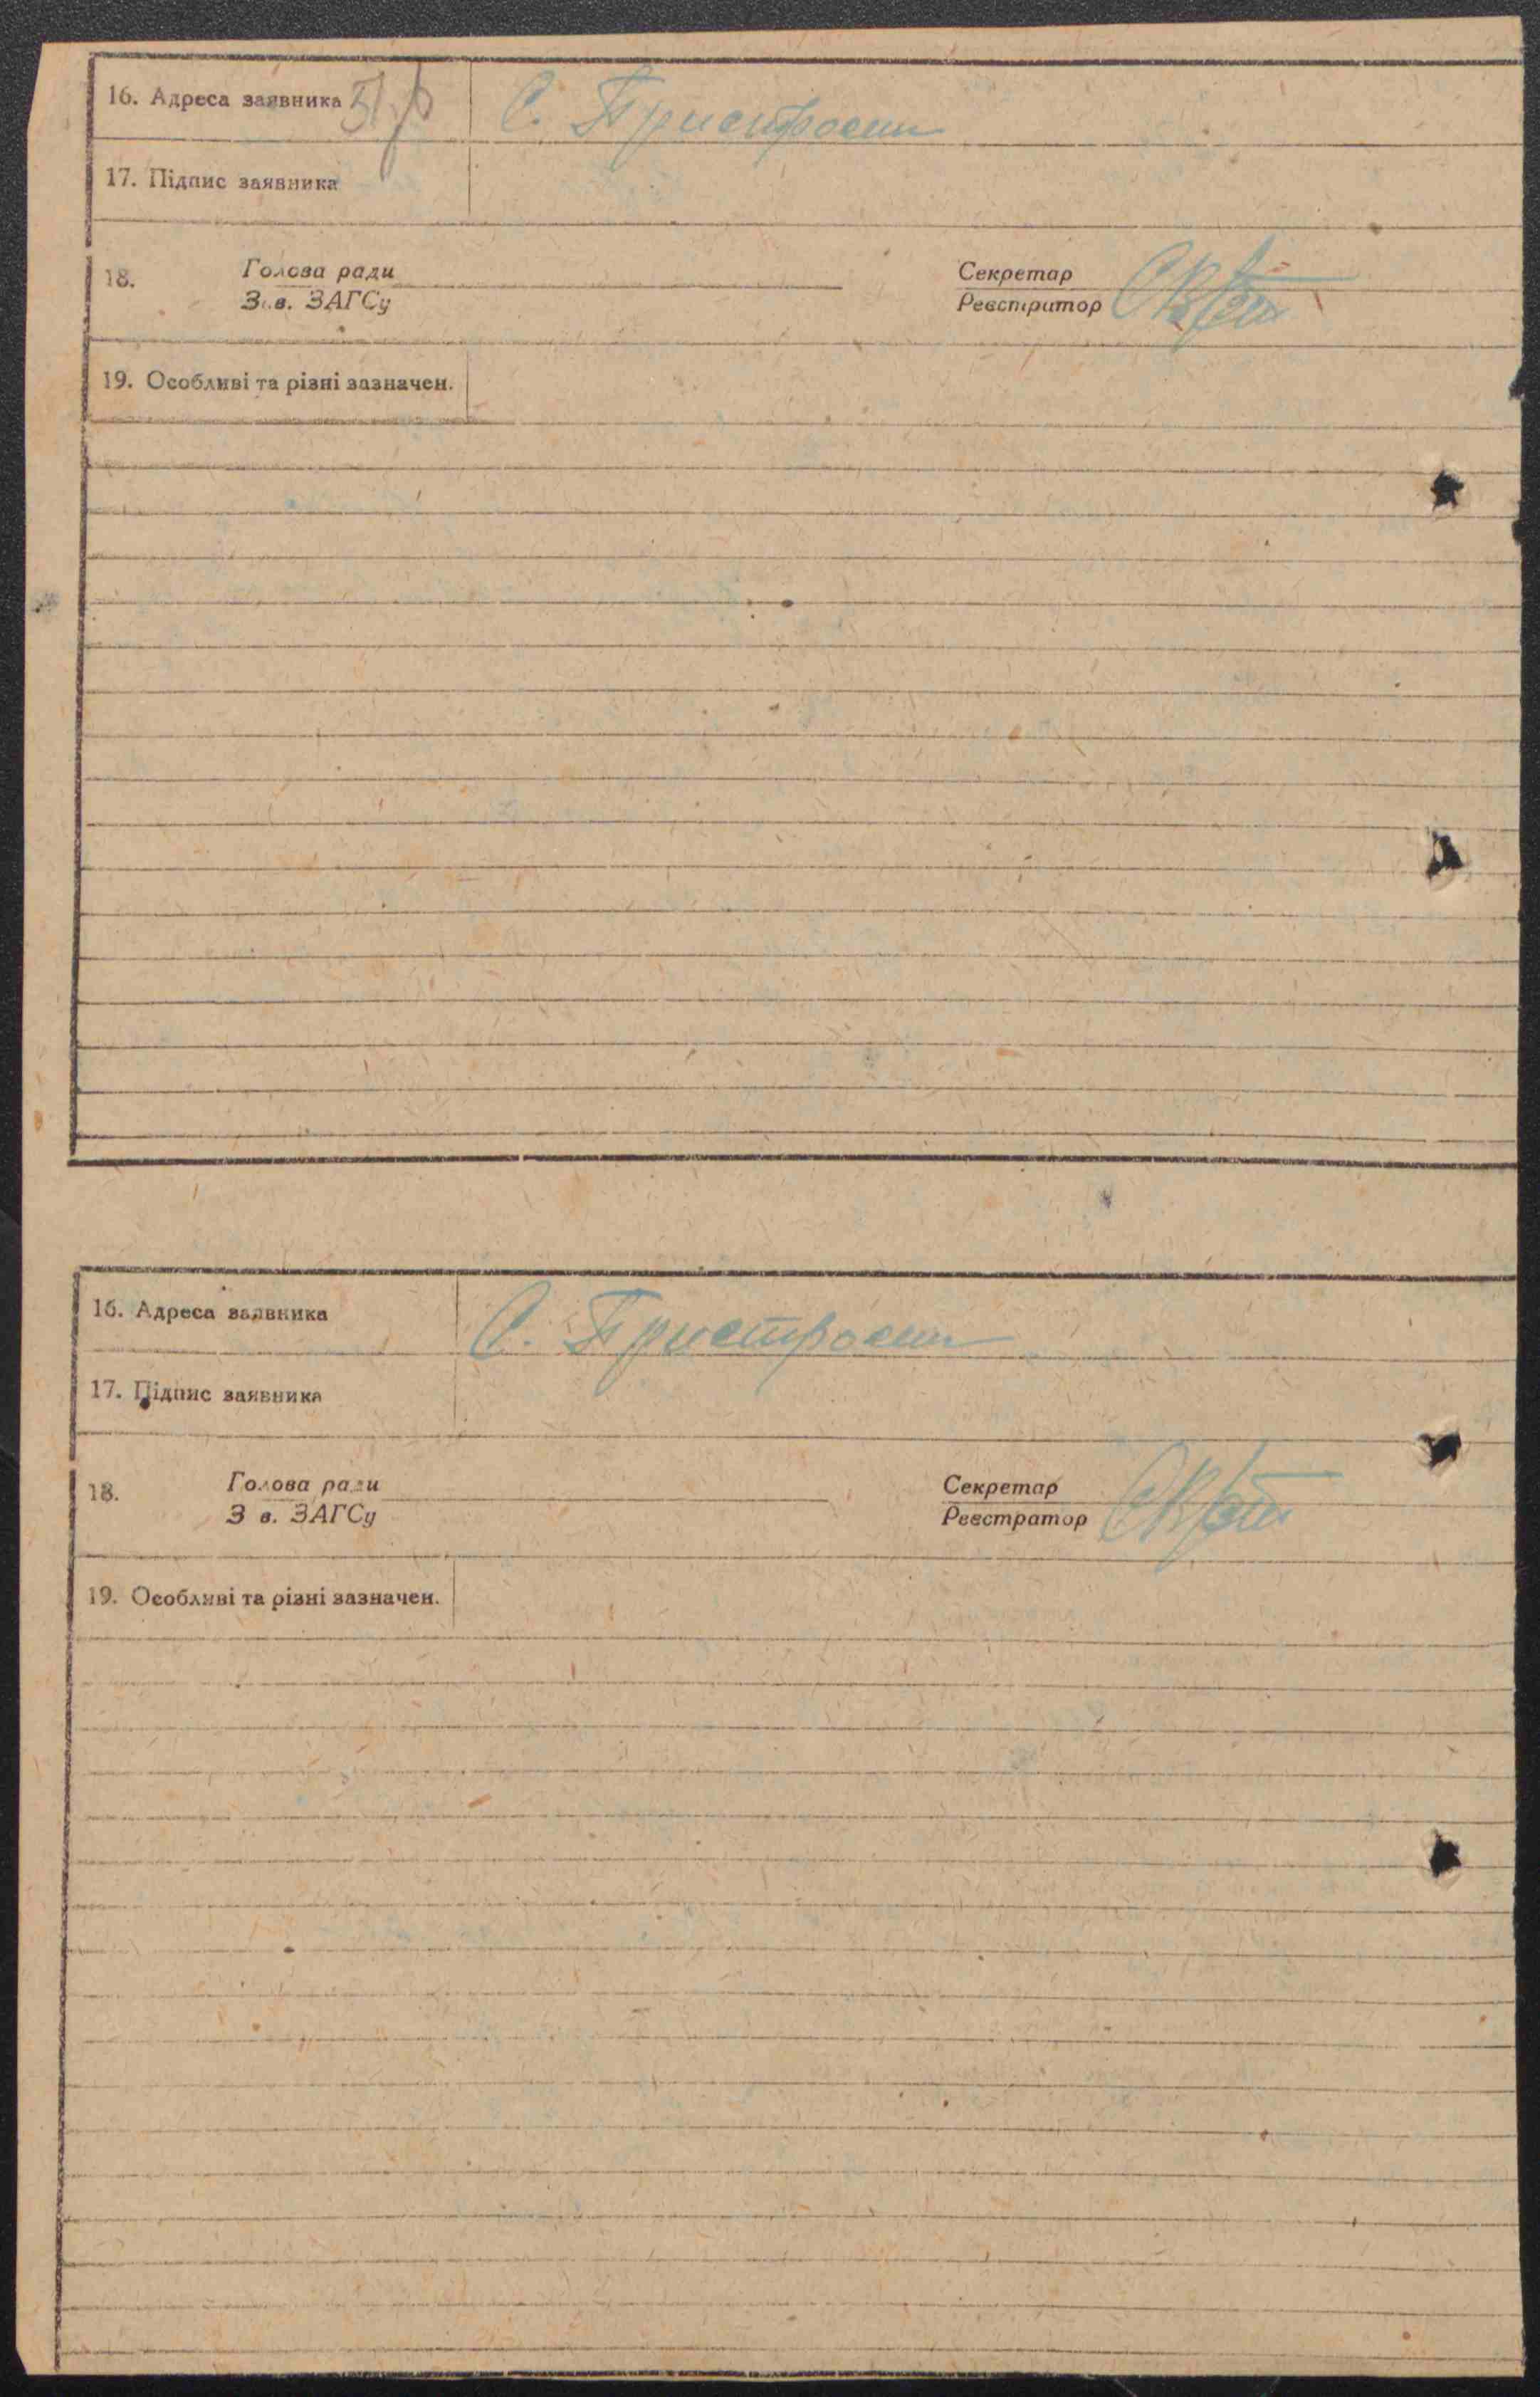 16. Адреса заявника С. Пристроєни
17. Підпис заявника
18. Голова ради Секретар
Зав. ЗАГСу Реєстратор
19. Особливі та різні зазначен.
16. Адреса заявника С. Пристроєни
17. Підпис заявника
18. Голова ради Секретар
Зав. ЗАГСу Реєстратор
19. Особливі та різні зазначен.